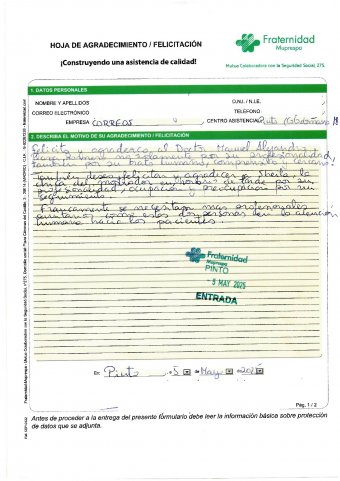 HOJA DE AGRADECIMIENTO / FELICITACIÓN
Fraternidad
Muprespa
¡Construyendo una asistencia de calidad!
Mutua Colaboradora con la Seguridad Social, 275.
1. DATOS PERSONALES
NOMBRE Y APELLIDOS
D.N.I. / N.I.E.
CORREO ELECTRÓNICO
TELÉFONO
EMPRESA CORREOS
CENTRO ASISTENCIAL Pinto
2. DESCRIBA EL MOTIVO DE SU AGRADECIMIENTO / FELICITACIÓN
Felicito y agradezco al Doctor Manuel Alejandro
no solamente por su profesionalidad,
también por su trato humano, comprensivo y cercano.
También deseo felicitar y agradecer a Sheila la
chica del mostrador en horas de tarde por su
profesionalidad, ocupación y preocupación por mi
seguimiento.
Francamente se necesitan más profesionales
sanitarios como estas dos personas en la atención
humana hacia los pacientes.
Fraternidad
Muprespa
PINTO
- 5 MAY 2025
ENTRADA
En Pinto a 5 de Mayo de 2025
Pág. 1 / 2
Antes de proceder a la entrega del presente formulario debe leer la información básica sobre protección
de datos que se adjunta.